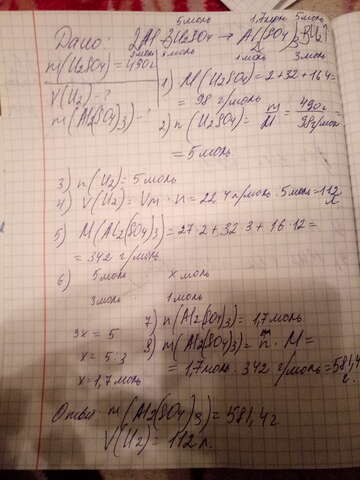 5 моль 1,7 моль 5 моль
Дано: 2Al 3H2SO4 → Al2(SO4)3 3H2↑
3 моль 1 моль 3 моль
m(H2SO4) = 490г
V(H2) = ?
m(Al2(SO4)3) - ?
1) M(H2SO4) = 2+32+16·4 =
= 98 г/моль
2) n(H2SO4) = m/M = 490г/98г/моль
= 5 моль
3) n(H2) = 5 моль
4) V(H2) = Vm · n = 22,4 л/моль · 5 моль = 112 л
5) M(Al2(SO4)3) = 27·2+32·3+16·12 =
= 342 г/моль
6) 5 моль x моль
3 моль 1 моль
3x = 5
x = 5:3
x = 1,7 моль
7) n(Al2(SO4)3) = 1,7 моль
8) m(Al2(SO4)3) = n · M =
= 1,7 моль · 342 г/моль = 581,4 г.
Ответ: m(Al2(SO4)3) = 581,4 г
V(H2) = 112 л.